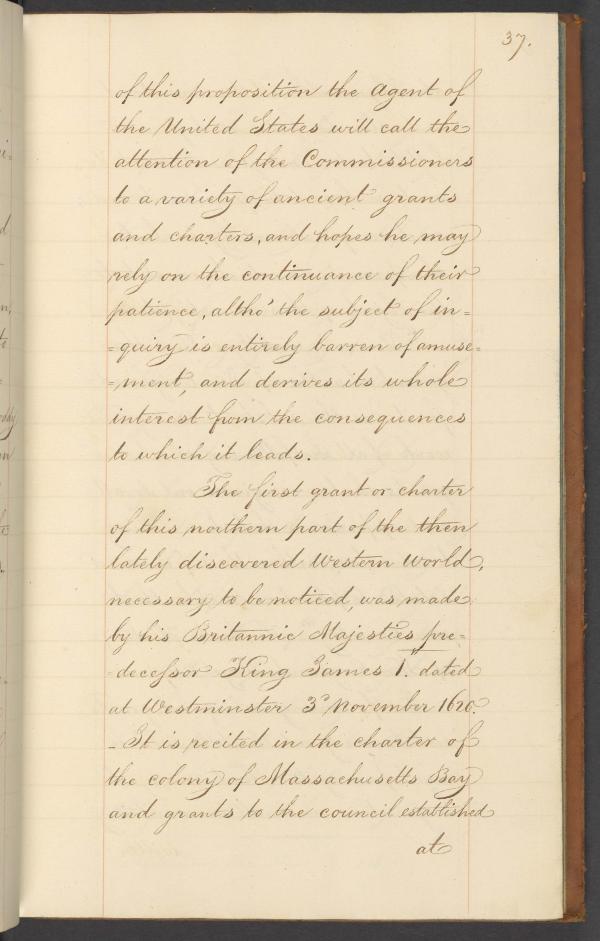 37.
of this proposition the Agent of
the United States will call the
attention of the Commissioners
to a variety of ancient grants
and charters, and hopes he may
rely on the continuance of their
patience, altho' the subject of in=
=quiry is entirely barren of amuse=
=ment, and derives its whole
interest from the consequences
to which it leads.
The first grant or charter
of this northern part of the then
lately discovered Western World,
necessary to be noticed, was made
by his Britannic Majesties pre=
=decessor King James 1. dated
at Westminster 3d November 1620.
- It is recited in the charter of
the colony of Massachusetts Bay
and grants to the council established
at